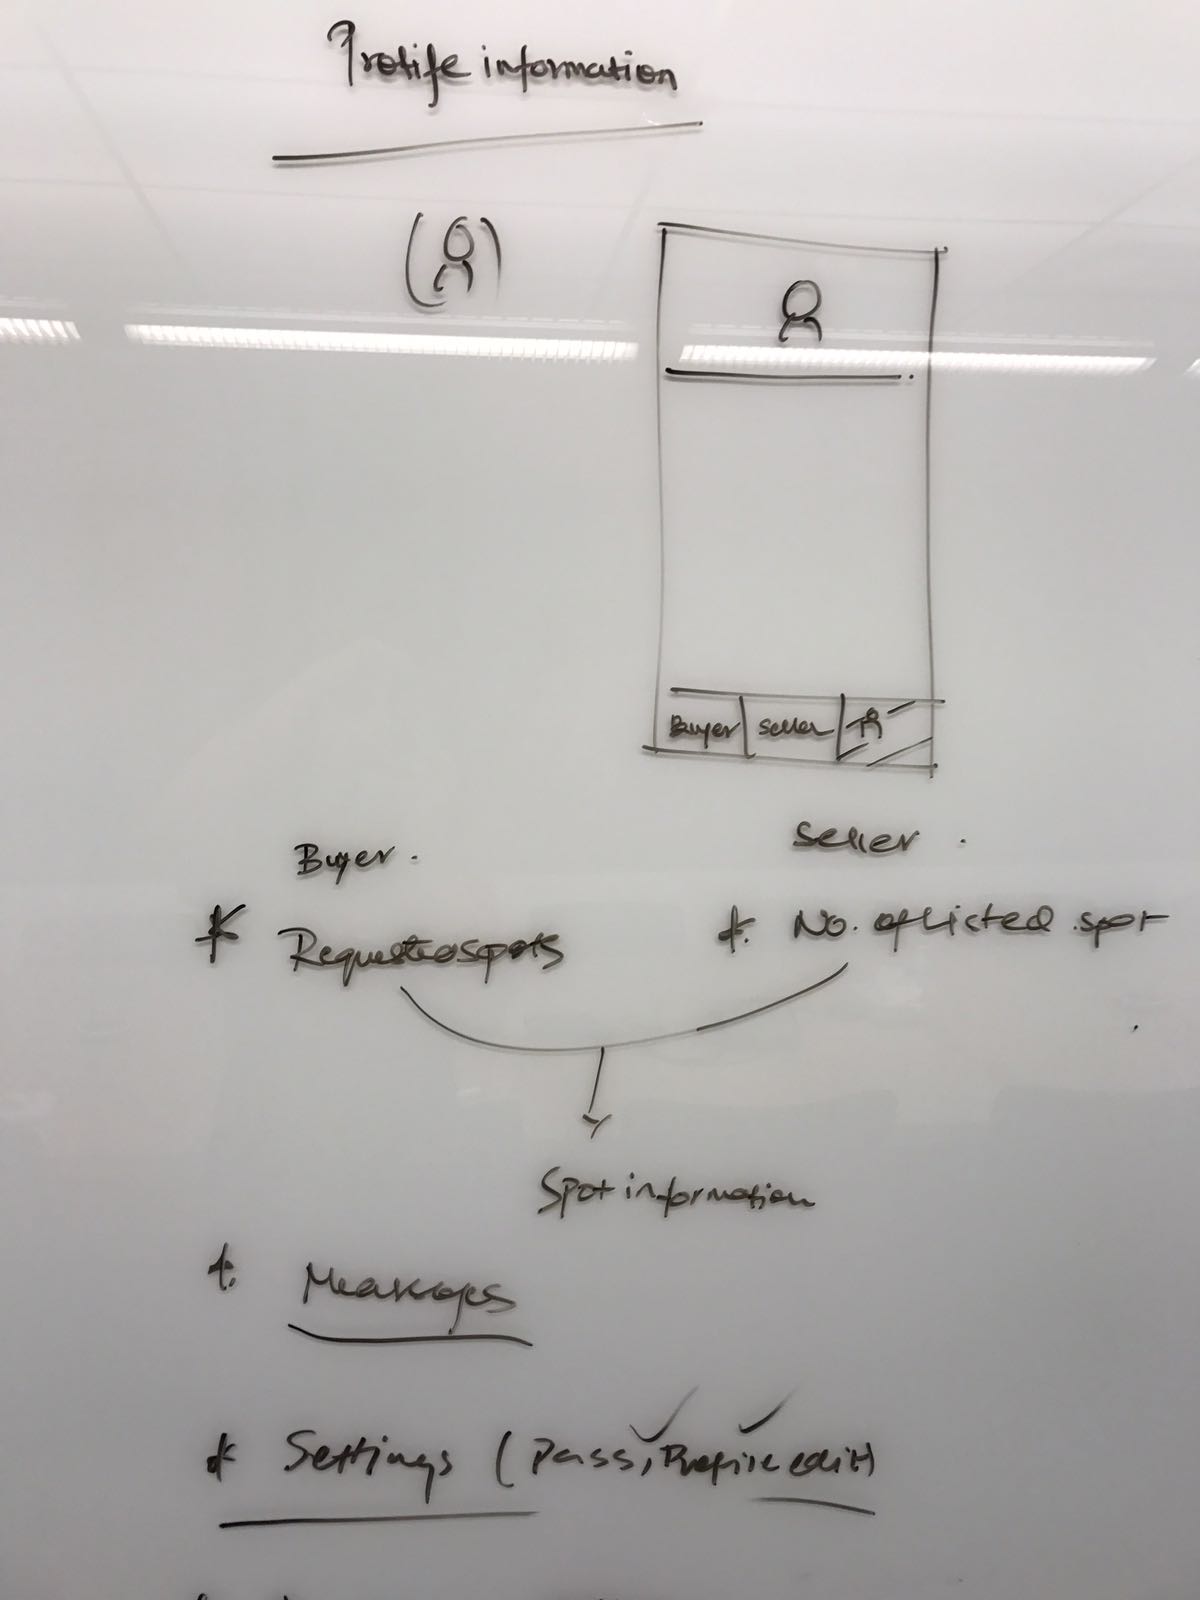 Profile information
Buyer seller
Buyer.
Seller.
* Requested spots
* No. of listed spot
Spot information
* Messages
* Settings (Pass, Profile edit)